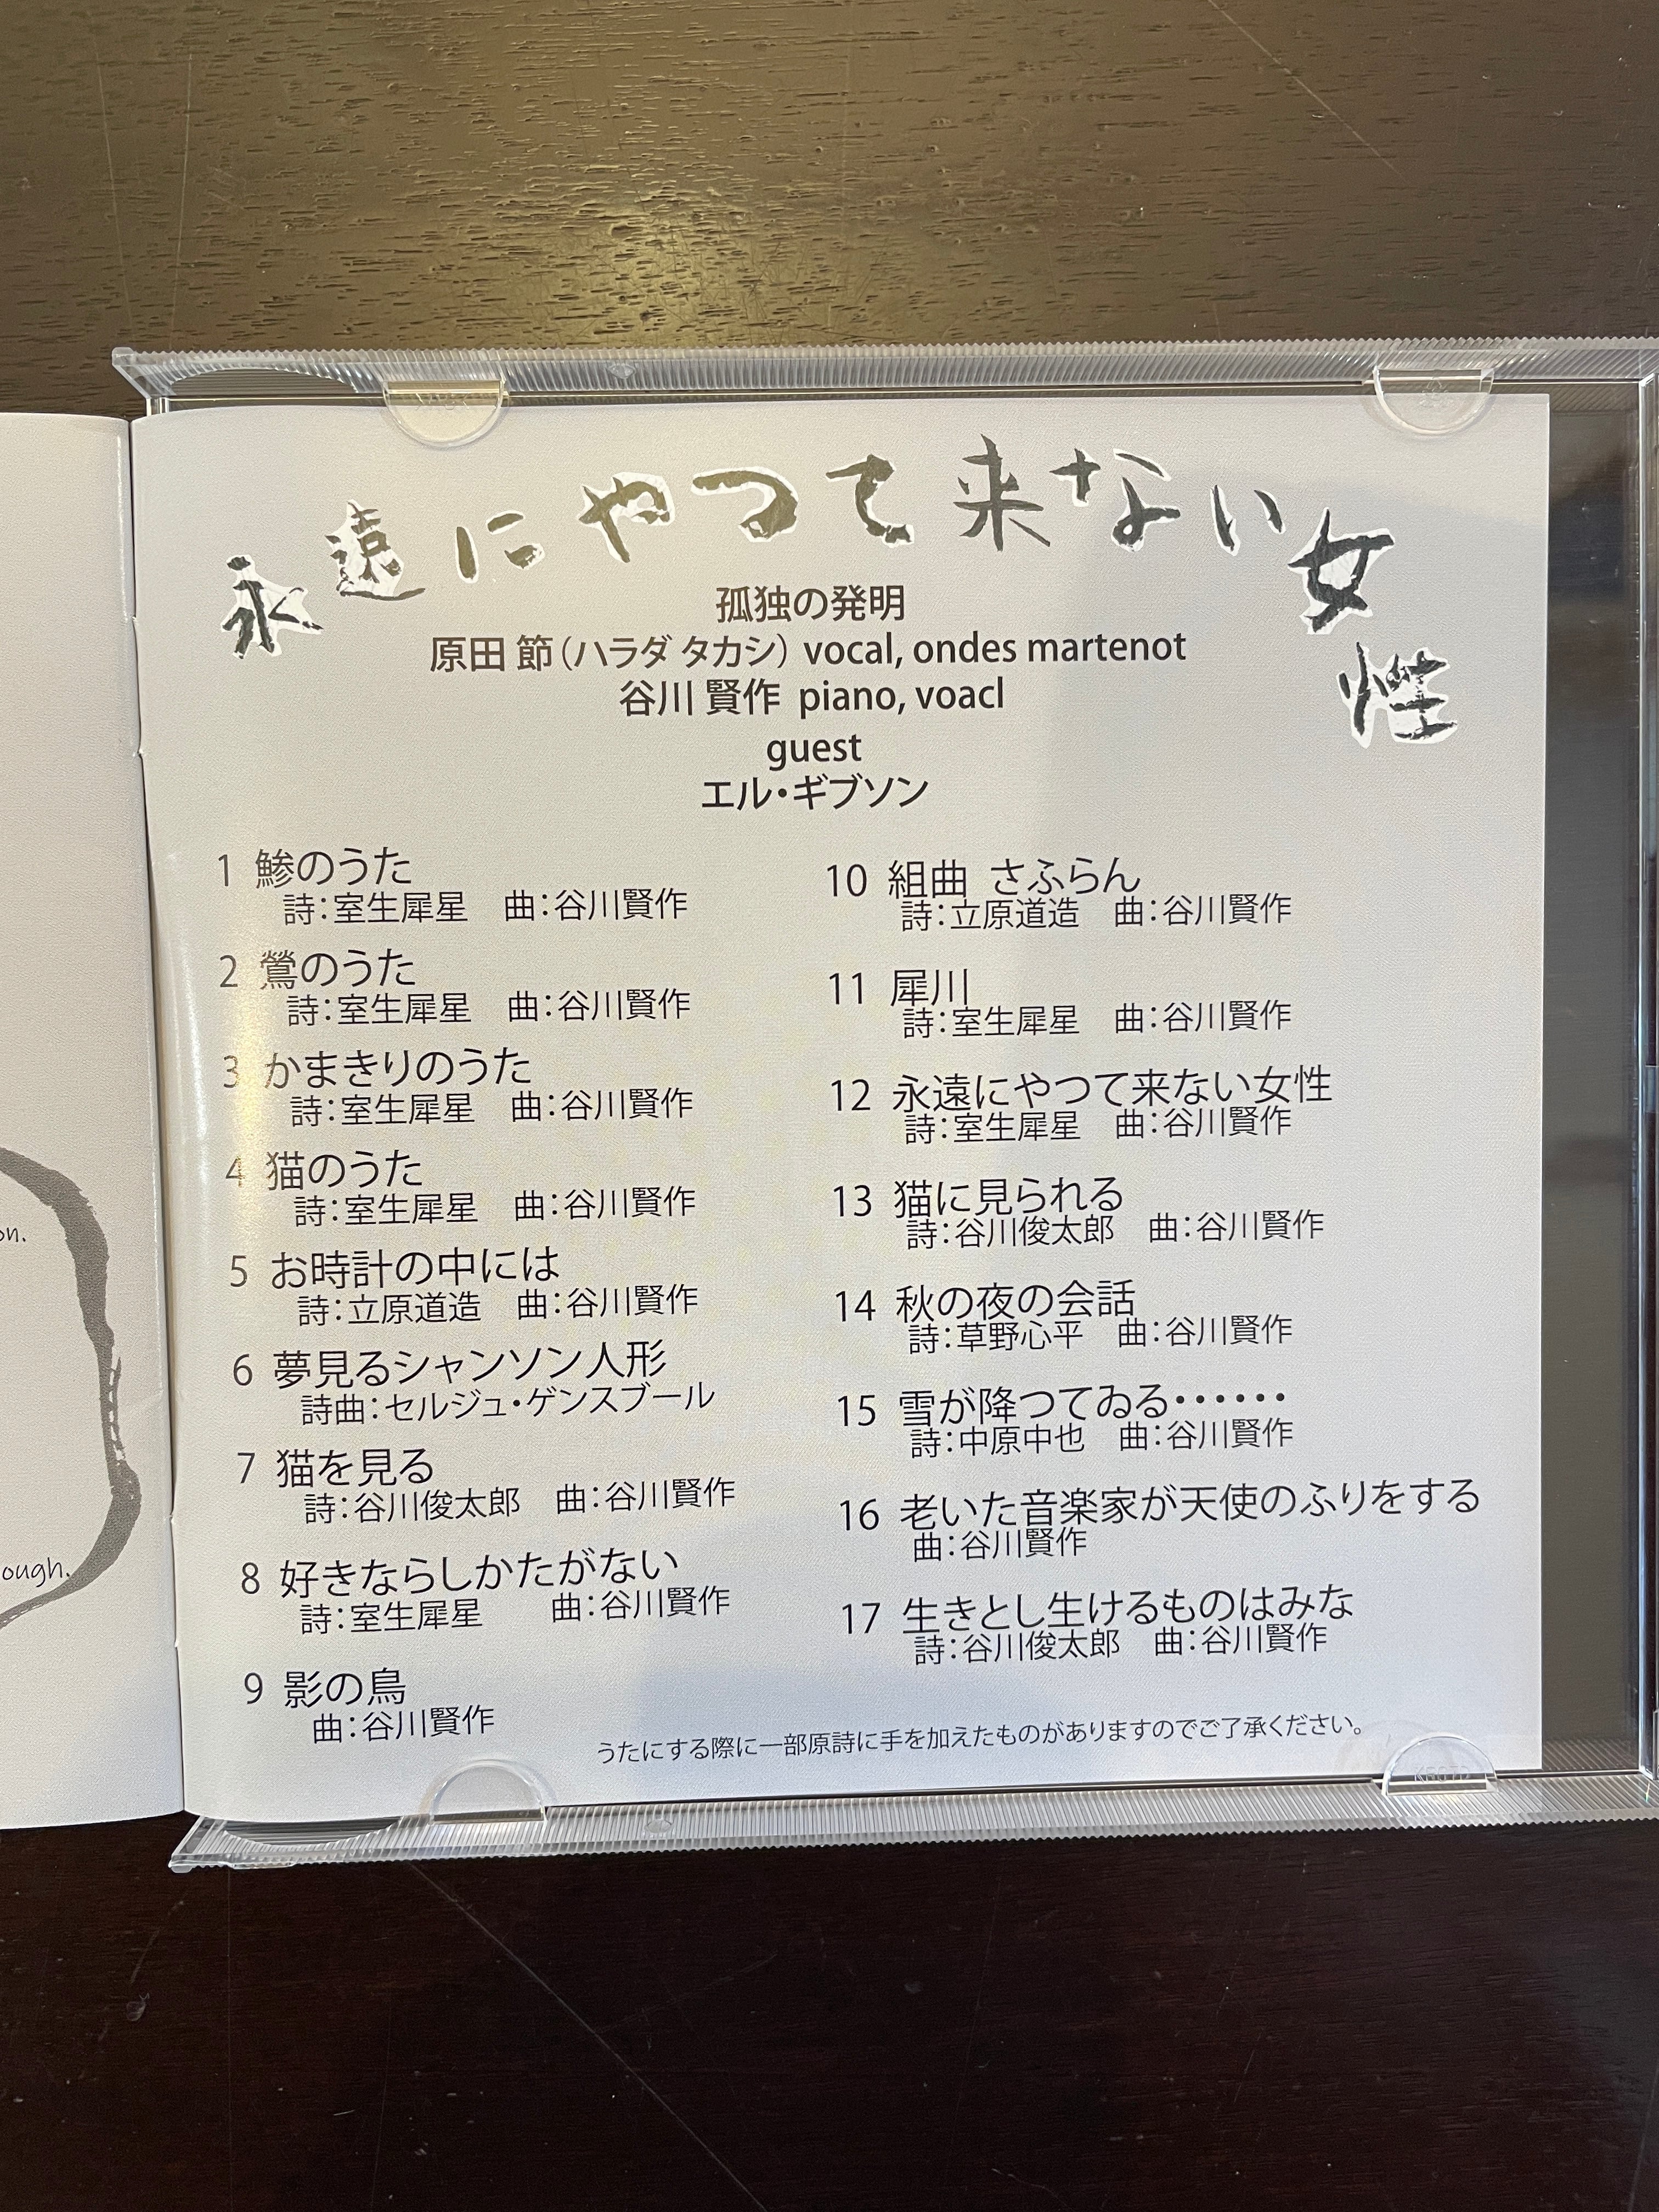 永遠にやつて来ない女性
孤独の発明
原田 節（ハラダ タカシ） vocal, ondes martenot
谷川 賢作 piano, voacl
guest
エル・ギブソン
1 鯵のうた
詩：室生犀星 曲：谷川賢作
2 鶯のうた
詩：室生犀星 曲：谷川賢作
3 かまきりのうた
詩：室生犀星 曲：谷川賢作
4 猫のうた
詩：室生犀星 曲：谷川賢作
5 お時計の中には
詩：立原道造 曲：谷川賢作
6 夢見るシャンソン人形
詩曲：セルジュ・ゲンスブール
7 猫を見る
詩：谷川俊太郎 曲：谷川賢作
8 好きならしかたがない
詩：室生犀星 曲：谷川賢作
9 影の鳥
曲：谷川賢作
10 組曲 さふらん
詩：立原道造 曲：谷川賢作
11 犀川
詩：室生犀星 曲：谷川賢作
12 永遠にやつて来ない女性
詩：室生犀星 曲：谷川賢作
13 猫に見られる
詩：谷川俊太郎 曲：谷川賢作
14 秋の夜の会話
詩：草野心平 曲：谷川賢作
15 雪が降つてゐる・・・・・・
詩：中原中也 曲：谷川賢作
16 老いた音楽家が天使のふりをする
曲：谷川賢作
17 生きとし生けるものはみな
詩：谷川俊太郎 曲：谷川賢作
うたにする際に一部原詩に手を加えたものがありますのでご了承ください。
on.
ough.